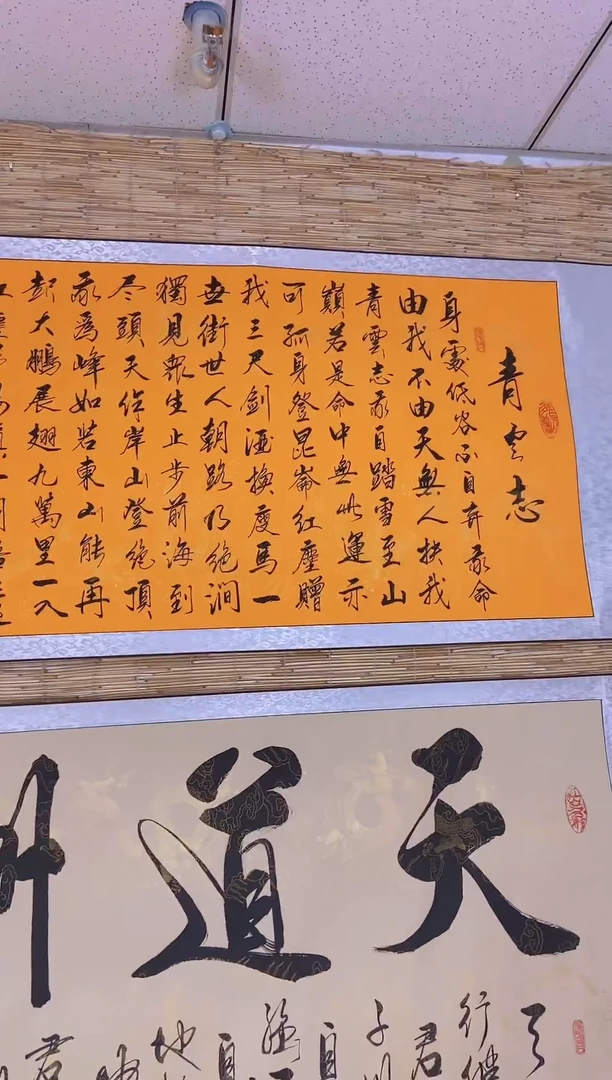 青云志
身處低谷不自弃我命
由我不由天無人扶我
青雲志我自踏雪至山
巔若是命中無此運亦
可孤身登昆崙紅塵贈
我三尺劍酒換度馬一
世街世人朝路乃絶澗
獨見眾生止步前海到
尽頭天作岸山登絶頂
我爲峰如若東山能再
起大鵬展翅九萬里一入
天道
行健
君
自
地
君